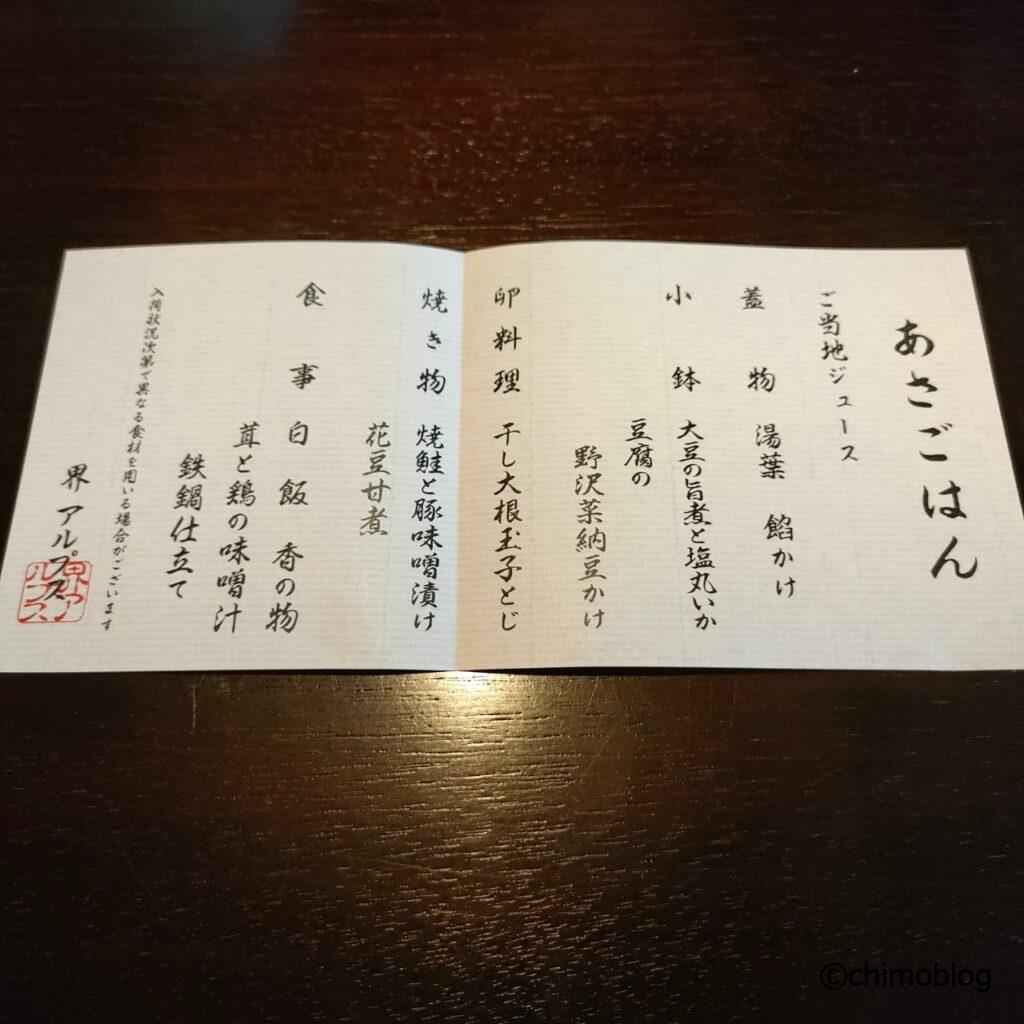 あさごはん
ご当地ジュース
蓋物 湯葉 餡かけ
小鉢 大豆の旨煮と塩丸いか
豆腐の
野沢菜納豆かけ
卵料理 干し大根玉子とじ
焼き物 焼鮭と豚味噌漬け
花豆甘煮
食事 白飯 香の物
茸と鶏の味噌汁
鉄鍋仕立て
入荷状況次第で異なる食材を用いる場合がございます
界 アルプス
界アルプス
©chimoblog